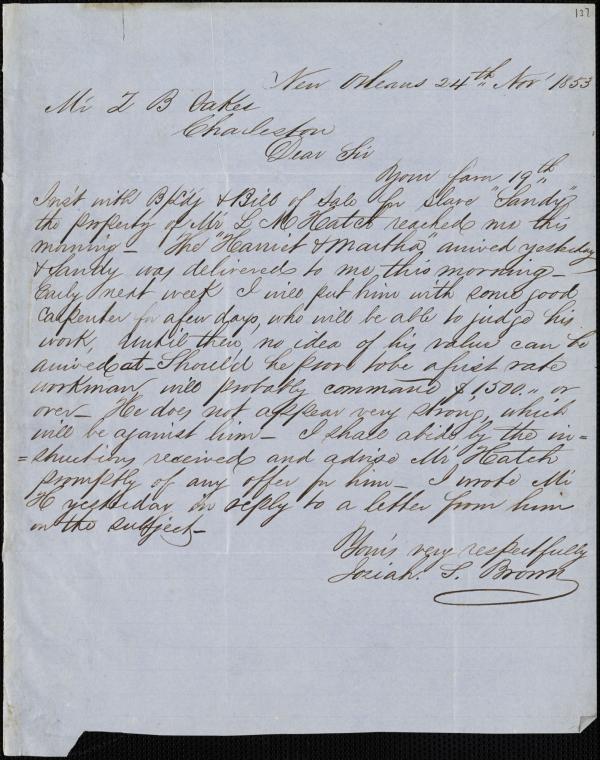 137
New Orleans 24th Nov' 1853
Mr Z B Oakes
Charleston
Dear Sir
Your favr 19th
Inst with B/Ldg & Bill of Sale for slave "Sandy"
the property of Mr L M Hatch reached me this
morning – The "Harriet & Martha" arrived yesterday
& Sandy was delivered to me, this morning –
Early next week I will put him with some good
Carpenter for a few days, who will be able to judge his
work, Until then, no idea of his value can be
arrived at – Should he prove to be a first rate
workman, will probably command $1500,, or
over – He does not appear very strong, which
will be against him – I shall abide by the in=
=structions received and advise Mr Hatch
promptly of any offer for him – I wrote Mr
H yesterday in reply to a letter from him
on the subject –
Yours very respectfully
Josiah. S. Brown